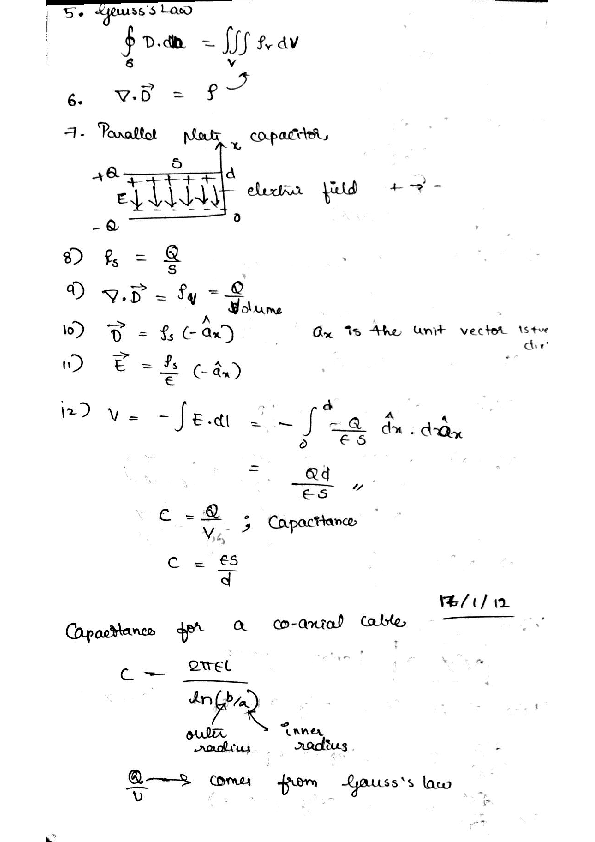 5. Gauss's Law
∮_S D.ds = ∭_V ρv dV
6. ∇.D⃗ = ρ
7. Parallel plate capacitor,
x
S
+Q + + + + + d
E electric field + → -
- Q 0
8) ρs = Q/S
9) ∇.D⃗ = ρv = Q/Volume
10) D⃗ = ρs (-âx) ax is the unit vector
11) E⃗ = ρs/ϵ (-âx)
12) V = - ∫ E.dl = - ∫_0^d -Q/ϵS âx . dx âx
= Qd/ϵS //
C = Q/V ; Capacitance
C = ϵS/d
17/1/12
Capacitance for a co-axial cable
C = 2πϵL/ln(b/a)
outer radius inner radius
Q/V → comes from Gauss's law